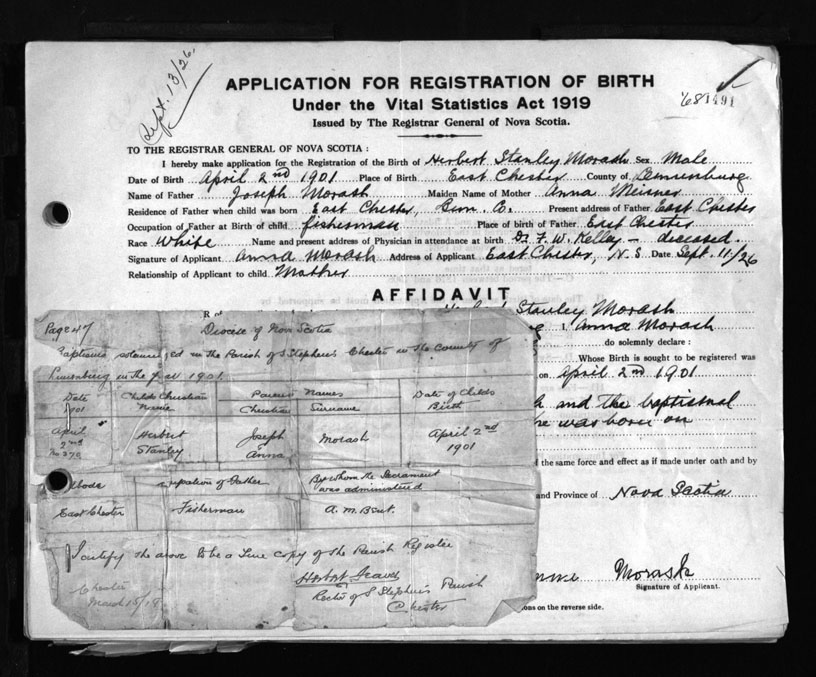 Sept. 13/26.
APPLICATION FOR REGISTRATION OF BIRTH
Under the Vital Statistics Act 1919
Issued by The Registrar General of Nova Scotia.
681491
TO THE REGISTRAR GENERAL OF NOVA SCOTIA :
I hereby make application for the Registration of the Birth of Herbert Stanley Morash Sex Male
Date of Birth April 2nd 1901 Place of Birth East Chester County of Lunenburg
Name of Father Joseph Morash Maiden Name of Mother Anna Meisner
Residence of Father when child was born East Chester, Lun. Co. Present address of Father East Chester
Occupation of Father at Birth of child fisherman Place of birth of Father East Chester
Race White Name and present address of Physician in attendance at birth Dr F. W. Kelley - deceased.
Signature of Applicant Anna Morash Address of Applicant East Chester, N.S Date Sept. 11/26
Relationship of Applicant to child Mother
AFFIDAVIT
Stanley Morash
I, Anna Morash
do solemnly declare :
Whose Birth is sought to be registered was
on April 2nd 1901
and the baptismal
was born on
the same force and effect as if made under oath and by
and Province of Nova Scotia
Morash
Signature of Applicant.
on the reverse side.
Page 47
Diocese of Nova Scotia
Baptisms solemnized in the Parish of S Stephen's Chester in the County of
Lunenburg in the year 1901
Date 1901 Childs Christian Name Parents Names Date of Childs Birth
Christian Surname
April 2nd No 378 Herbert Stanley Joseph Anna Morash April 2nd 1901
Abode Occupation of Father By whom the Sacrament was administered
East Chester Fisherman A. M. Bent.
I certify the above to be a true copy of the Parish Register
Herbert Graves
Rector of S Stephen's Parish
Chester
Chester
March 15/18